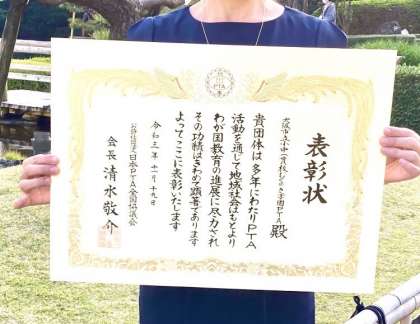 表彰状
小中一貫校
学園PTA殿
貴団体は多年にわたりPTA
活動を通じて地域社会はもとより
わが国教育の進展に尽力され
その功績はきわめて顕著であります
よってここに表彰いたします
令和三年十一月十九日
公益社団法人日本PTA全国協議会
会長 清水敬介
PTA